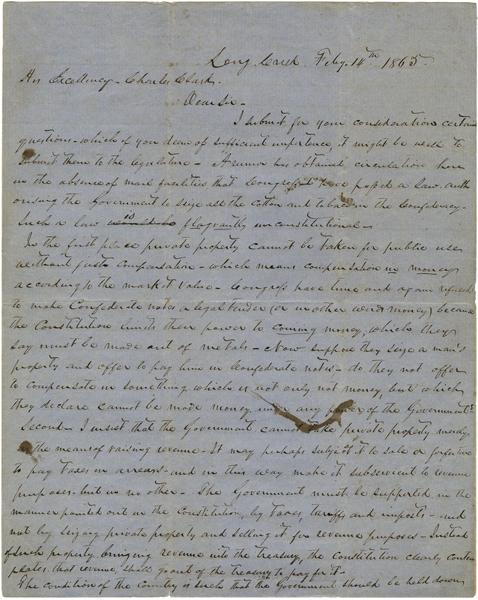 Long Creek Feby. 14th 1865.
His Excellency - Charles Clark
Dear Sir -
I submit for your consideration certain
questions - which if you deem of sufficient importance, it might be well to
submit them to the legislature - A rumor has obtained circulation here
in the absence of mail facilities that Congress have passed a law auth
orising the Government to seize all the cotton and tobacco in the Confederacy -
Such a law is flagrantly unconstitutional -
In the first place private property cannot be taken for public use
without just compensation - which means compensation in money
according to the market value - Congress have time and again refused
to make Confederate notes a legal tender (or in other words money) because
the Constitution limits their power to coining money, which they
say must be made out of metals - Now suppose they seize a man's
property and offer to pay him in Confederate notes - do they not offer
to compensate in something which is not only not money, but which
they declare cannot be made money by any power of the Government?
Second - I insist that the Government cannot take private property merely
as the means of raising revenue - It may perhaps subject it to sale or forfeiture
to pay taxes in arrears - and in this way make it subservient to revenue
purposes - but in no other - The Government must be supported in the
manner pointed out in the Constitution, by taxes, tariffs and imposts - and
not by seizing private property and selling it for revenue purposes - Instead
of such property bringing revenue into the treasury, the Constitution clearly contem
plates, that revenue, shall go out of the treasury to pay for it -
The condition of the Country is such that the Government should be held down